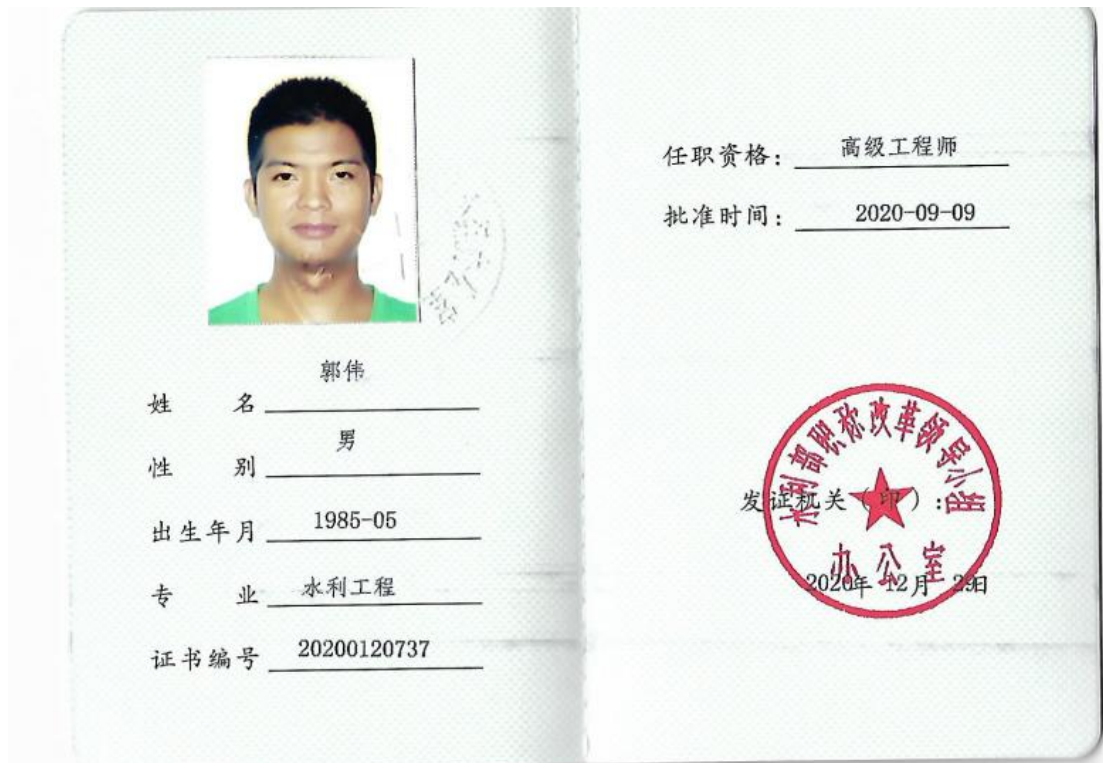 郭伟
姓 名
男
性 别
出生年月 1985-05
专 业 水利工程
证书编号 20200120737
任职资格： 高级工程师
批准时间： 2020-09-09
水利部职称改革领导小组
发证机关（印）：
办公室
2020年 12月 29日